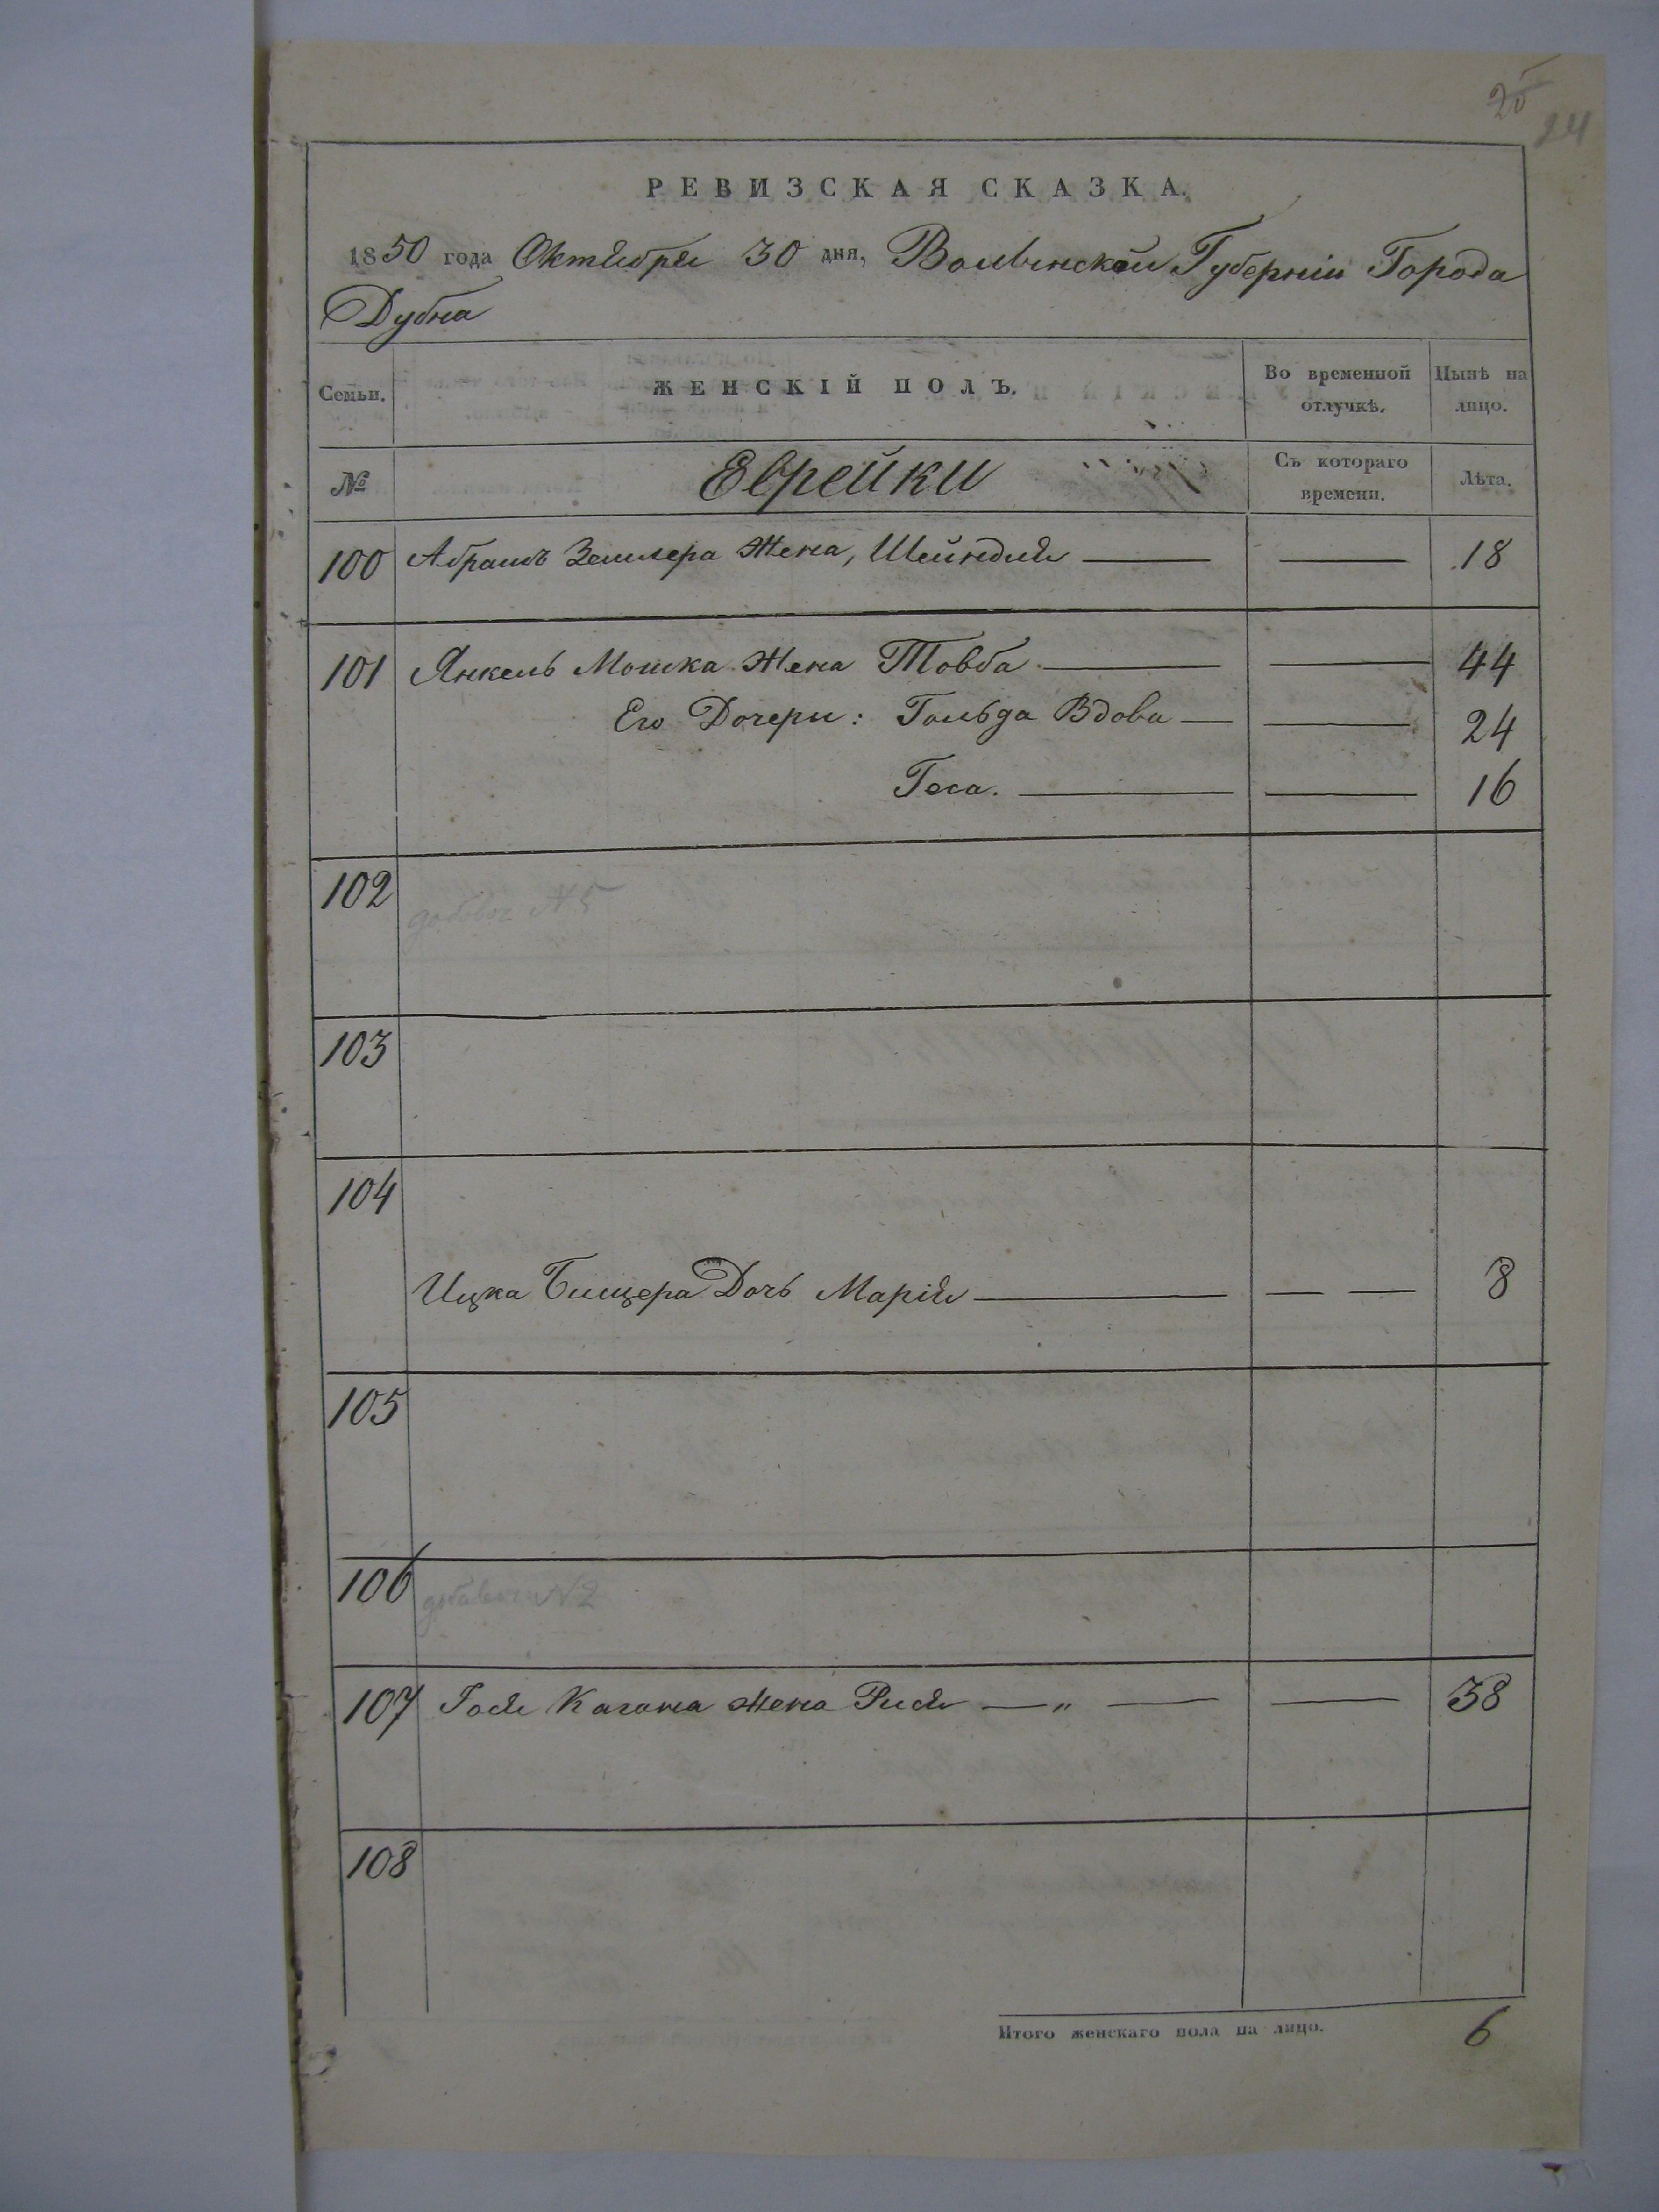 25
24
РЕВИЗСКАЯ СКАЗКА.
1850 года Октября 30 дня, Волынской Губерніи Города
Дубна
Семьи. ЖЕНСКІЙ ПОЛЪ. Во временной отлучкѣ. Нынѣ на лицо.
№ Еврейки Съ котораго времени. Лѣта.
100 Абрамъ Зейлера Жена, Шейндля — — 18
101 Янкель Мошка Жена Товба — — 44
Его Дочери: Гольда Вдова — — 24
Геса. — — 16
102
N 5
103
104
Ицка Бищера Дочь Марія — — — 8
105
106
N 2
107 Кагана жена Рися — " — — 38
108
Итого женскаго пола на лицо. 6